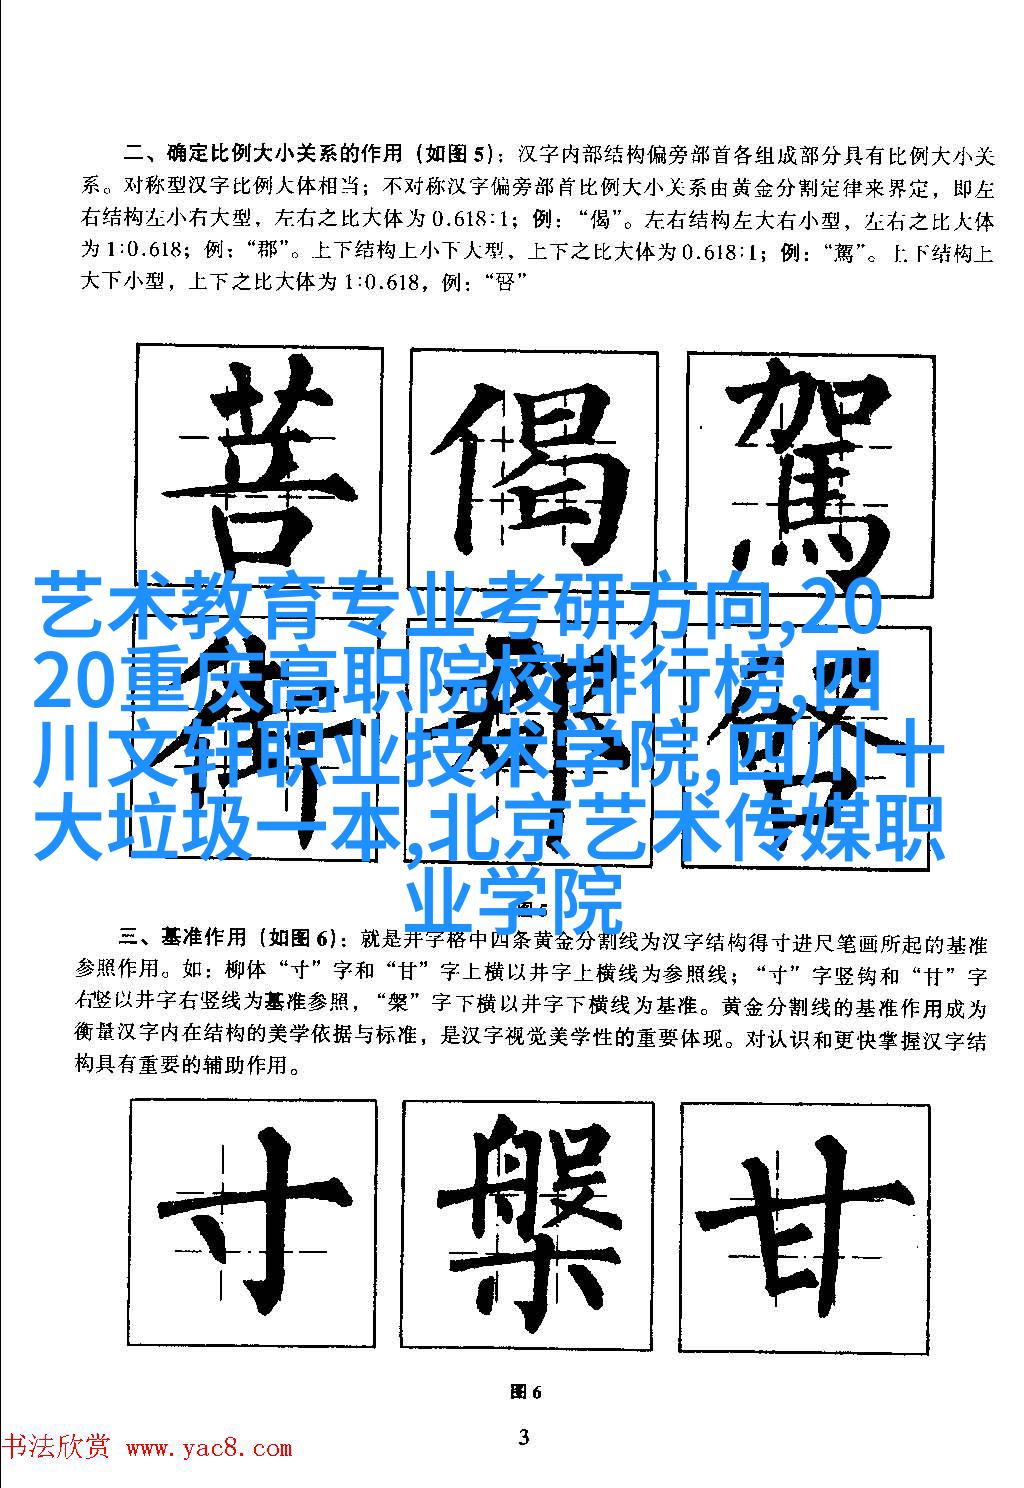 二、确定比例大小关系的作用（如图5）：汉字内部结构偏旁部首各组成部分具有比例大小关
系。对称型汉字比例大体相当；不对称汉字偏旁部首比例大小关系由黄金分割定律来界定，即左
右结构左小右大型，左右之比大体为0.618:1；例：“偈”。左右结构左大右小型，左右之比大体
为1:0.618；例：“郡”。上下结构上小下大型，上下之比大体为0.618:1；例：“駕”。上下结构上
大下小型，上下之比大体为1:0.618，例：“”
菩 偈 駕
艺术教育专业考研方向,20
20重庆高职院校排行榜,四
川文轩职业技术学院,四川十
大垃圾一本,北京艺术传媒职
业学院
图5
三、基准作用（如图6）：就是井字格中四条黄金分割线为汉字结构得寸进尺笔画所起的基准
参照作用。如：柳体“寸”字和“甘”字上横以井字上横线为参照线；“寸”字竖钩和“甘”字
右竖以井字右竖线为基准参照，“槃”字下横以井字下横线为基准。黄金分割线的基准作用成为
衡量汉字内在结构的美学依据与标准，是汉字视觉美学性的重要体现。对认识和更快掌握汉字结
构具有重要的辅助作用。
寸 槃 甘
图6
3
书法欣赏 www.yac8.com